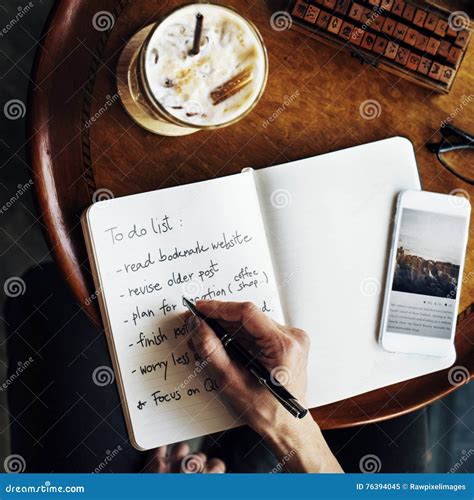 To do list :
- read bookmark website
- revise older post
- plan for (coffee shop..)
- finish
- worry less
☆ Focus on
dreamstime
ID 76394045 © Rawpixelimages